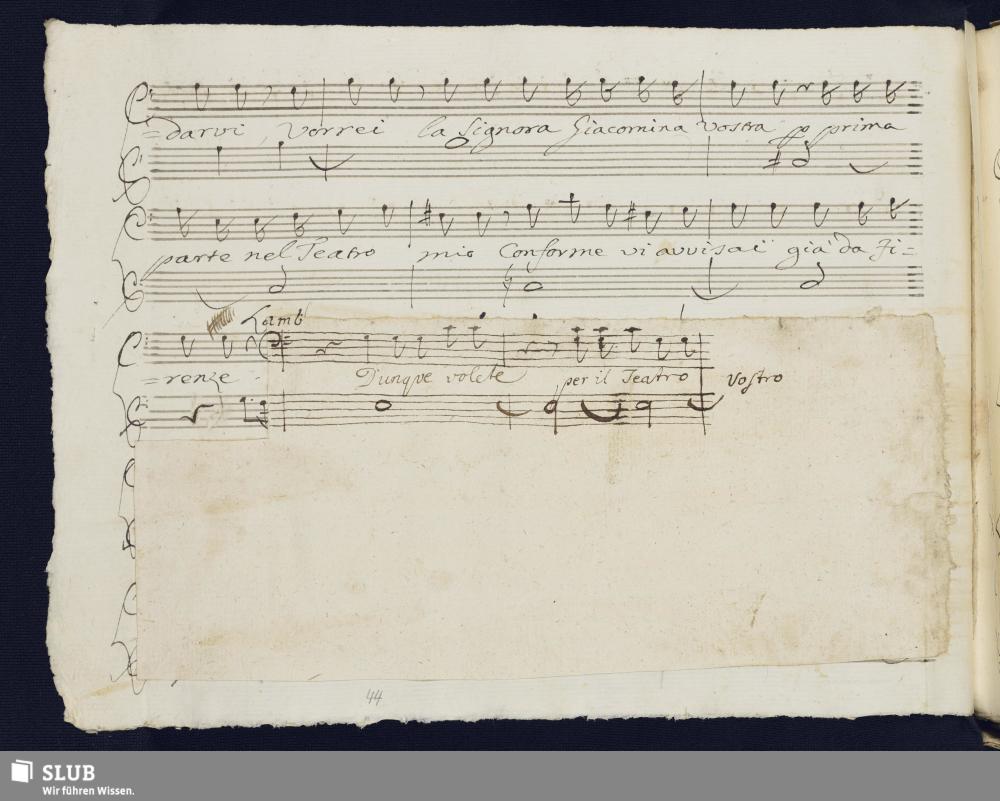 =darvi vorrei la Signora Giacomina vostra pª prima
parte nel Teatro mio Conforme vi avvisai già da Fi=
Lamb
=renze Dunque volete per il Teatro vostro
44
SLUB
Wir führen Wissen.